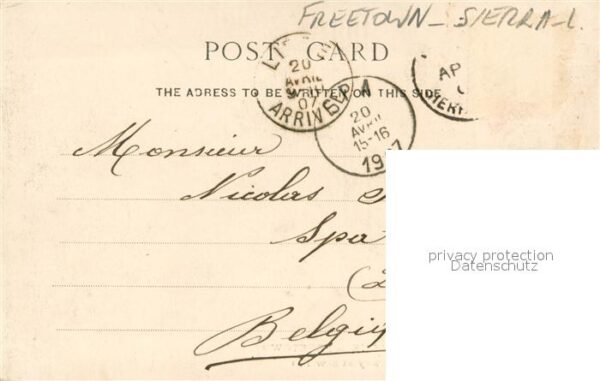 FREETOWN - SIERRA-L.
POST CARD
THE ADRESS TO BE WRITTEN ON THIS SIDE
20
AVRIL
07
ARRIV
SPA
20
AVRIL
15-16
1907
AP
SIERR
Monsieur
Nicolas
Spa
Belgiq
privacy protection
Datenschutz